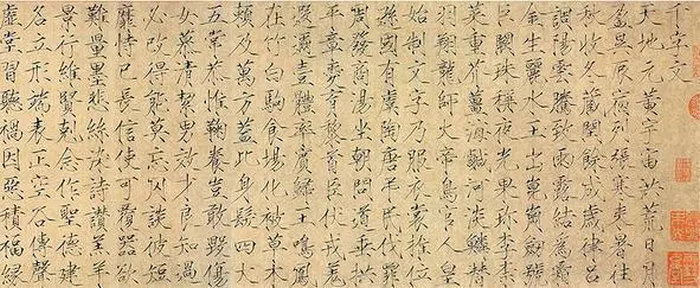 千字文
天地元黃宇宙洪荒日月
盈昃辰宿列張寒來暑往
秋收冬藏閏餘成歲律呂
調陽雲騰致雨露結為霜
金生麗水玉出崑岡劍號
巨闕珠稱夜光果珍李柰
菜重芥薑海鹹河淡鱗潛
羽翔龍師火帝鳥官人皇
始制文字乃服衣裳推位
遜國有虞陶唐弔民伐罪
周發商湯坐朝問道垂拱
平章愛育黎首臣伏戎羌
遐邇壹體率賓歸王鳴鳳
在竹白駒食場化被草木
賴及萬方蓋此身髮四大
五常恭惟鞠養豈敢毀傷
女慕清絜男效才良知過
必改得能莫忘罔談彼短
靡恃己長信使可覆器欲
難量墨悲絲染詩讚羔羊
景行維賢剋念作聖德建
名立形端表正空谷傳聲
虛堂習聽禍因惡積福緣